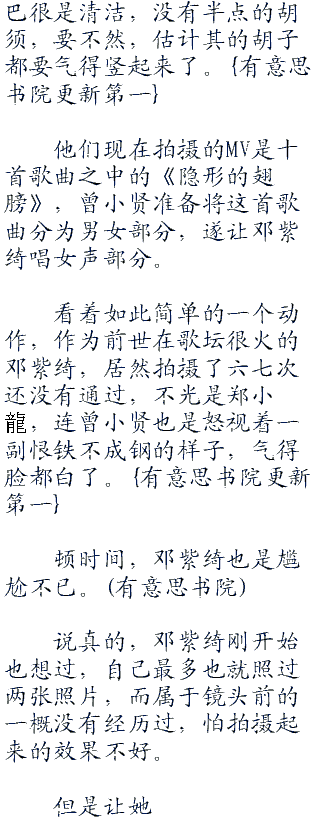 巴很是清洁，没有半点的胡
须，要不然，估计其的胡子
都要气得竖起来了。{有意思
书院更新第一}
他们现在拍摄的MV是十
首歌曲之中的《隐形的翅
膀》，曾小贤准备将这首歌
曲分为男女部分，遂让邓紫
绮唱女声部分。
看着如此简单的一个动
作，作为前世在歌坛很火的
邓紫绮，居然拍摄了六七次
还没有通过，不光是郑小
龍，连曾小贤也是怒视着一
副恨铁不成钢的样子，气得
脸都白了。{有意思书院更新
第一}
顿时间，邓紫绮也是尴
尬不已。(有意思书院)
说真的，邓紫绮刚开始
也想过，自己最多也就照过
两张照片，而属于镜头前的
一概没有经历过，怕拍摄起
来的效果不好。
但是让她